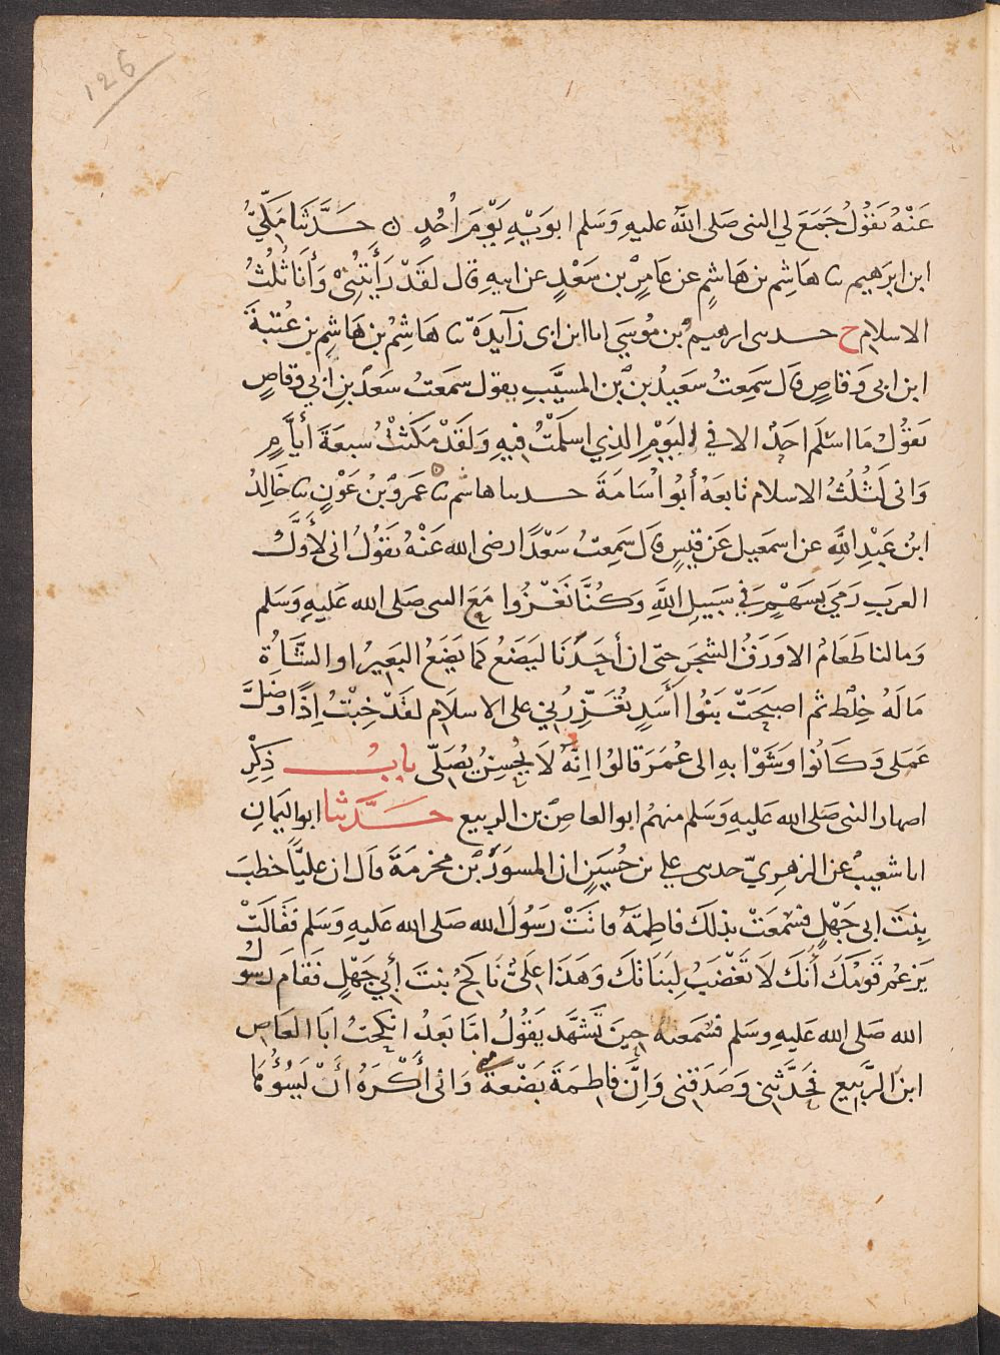 126
عَنْهُ يَقُولُ جَمَعَ لِي النبى صَلى اللَّه عليهِ وَسَلم ابوَيْهِ يَوْمَ أُحُدٍ ن حَدَّثَنَا مَكِّيُّ
ابن ابرَهيم نا هَاشِم بن هَاشِمٍ عن عَامِرِ بن سَعْدٍ عن ابيهِ قال لَقَدْ رَأَيْتُنِىْ وَأَنَا ثُلُثُ
الاسلام ح حدىى ابرهيمُ بن مُوسَى انا ابن ابى زَآيِدَة نا هَاشِمُ بن هَاشِم بن عُتْبَةَ
ابن ابى وَقاصٍ قال سَمِعتُ سَعِيدُ بنُ بْن المسيَّبِ يقول سَمعتُ سَعدَ بنِ ابي وقاصٍ
يَقُوْلُ مَا اسْلَم احَدٌ الا في اليَوْمِ الذِي اسلَمْتُ فِيهِ وَلقَدْ مَكَثْتُ سبعَةَ أيَّامٍ
وَانى لَثُلُثُ الاسلام تابعَهُ أبُو اسَامَةَ حدىىا هاشم نا عَمَروُ بْن عَوْنٍ نا خَالِدُ
ابنُ عَبْدِ اللَّهِ عن اسمَعيل عَن قيْسٍ قال سَمِعتُ سَعْدًا رضى الله عَنْهُ يَقُوْلُ انى لأَوَّلُ
العرَبِ رَمَي بِسَهْمٍ فِي سَبِيلِ اللَّهِ وَكُنَّا نَغْزُوا مَعَ النبى صَلى الله عَليهِ وَسَلم
وَمالنا طَعَامٌ الا وَرَقُ الشجَرِ حتّى ان أحَدُنَا لَيَضَعُ كَمَا يَضَعُ البَعِيرُ او الشَّاةُ
مَا لَهُ خِلْط ثم اصبَحَتْ بَنُوا أَسَدٍ تُعَزِّرُنِي على الاسلاَم لقَدْ خِبْتُ إذًا وَضَلَّ
عَمَلى وَكَانُوا وَشَوْا بهِ الى عُمَرَ قالُوا إنَّهُ لاَ يُحْسِنُ يُصَلّى بابُ ذِكْرِ
اصهار النبى صَلى الله عَليهِ وَسَلم منهمْ ابو العاصِ بن الربيع حَدَّثَنا ابو اليَمانِ
انا شعيبٌ عن الزهرِيّ حدىى علي بن حُسَينٍ ان المسوَرَ بْن مخرمَةَ قال ان عليًّا خطبَ
بِنتَ ابى جَهْلٍ فسَمعَتْ بذلكَ فاطِمَةُ فاتَتْ رَسُولَ الله صَلى الله عَليهِ وَسَلم فَقَالَتْ
يَزعمُ قَومُكَ أنكَ لاَ تَغْضَبُ لِبَنَاتكَ وَهَذَا عَلِيٌّ نَاكِحٌ بنتَ أبي جَهْلٍ فَقامَ رسُولُ
الله صَلى الله عَليهِ وسَلم فسَمعتهُ حِينَ تشَهَّد يَقُولُ امَّا بَعدُ انكحتُ ابَا العَاصِ
ابن الرَّبِيع فحَدَّثنِي وَصَدَقَنى وَاِنَّ فَاطِمَةَ بَضْعةٌ مني وَانى أَكْرَهُ أَنْ يَسُؤُهَا